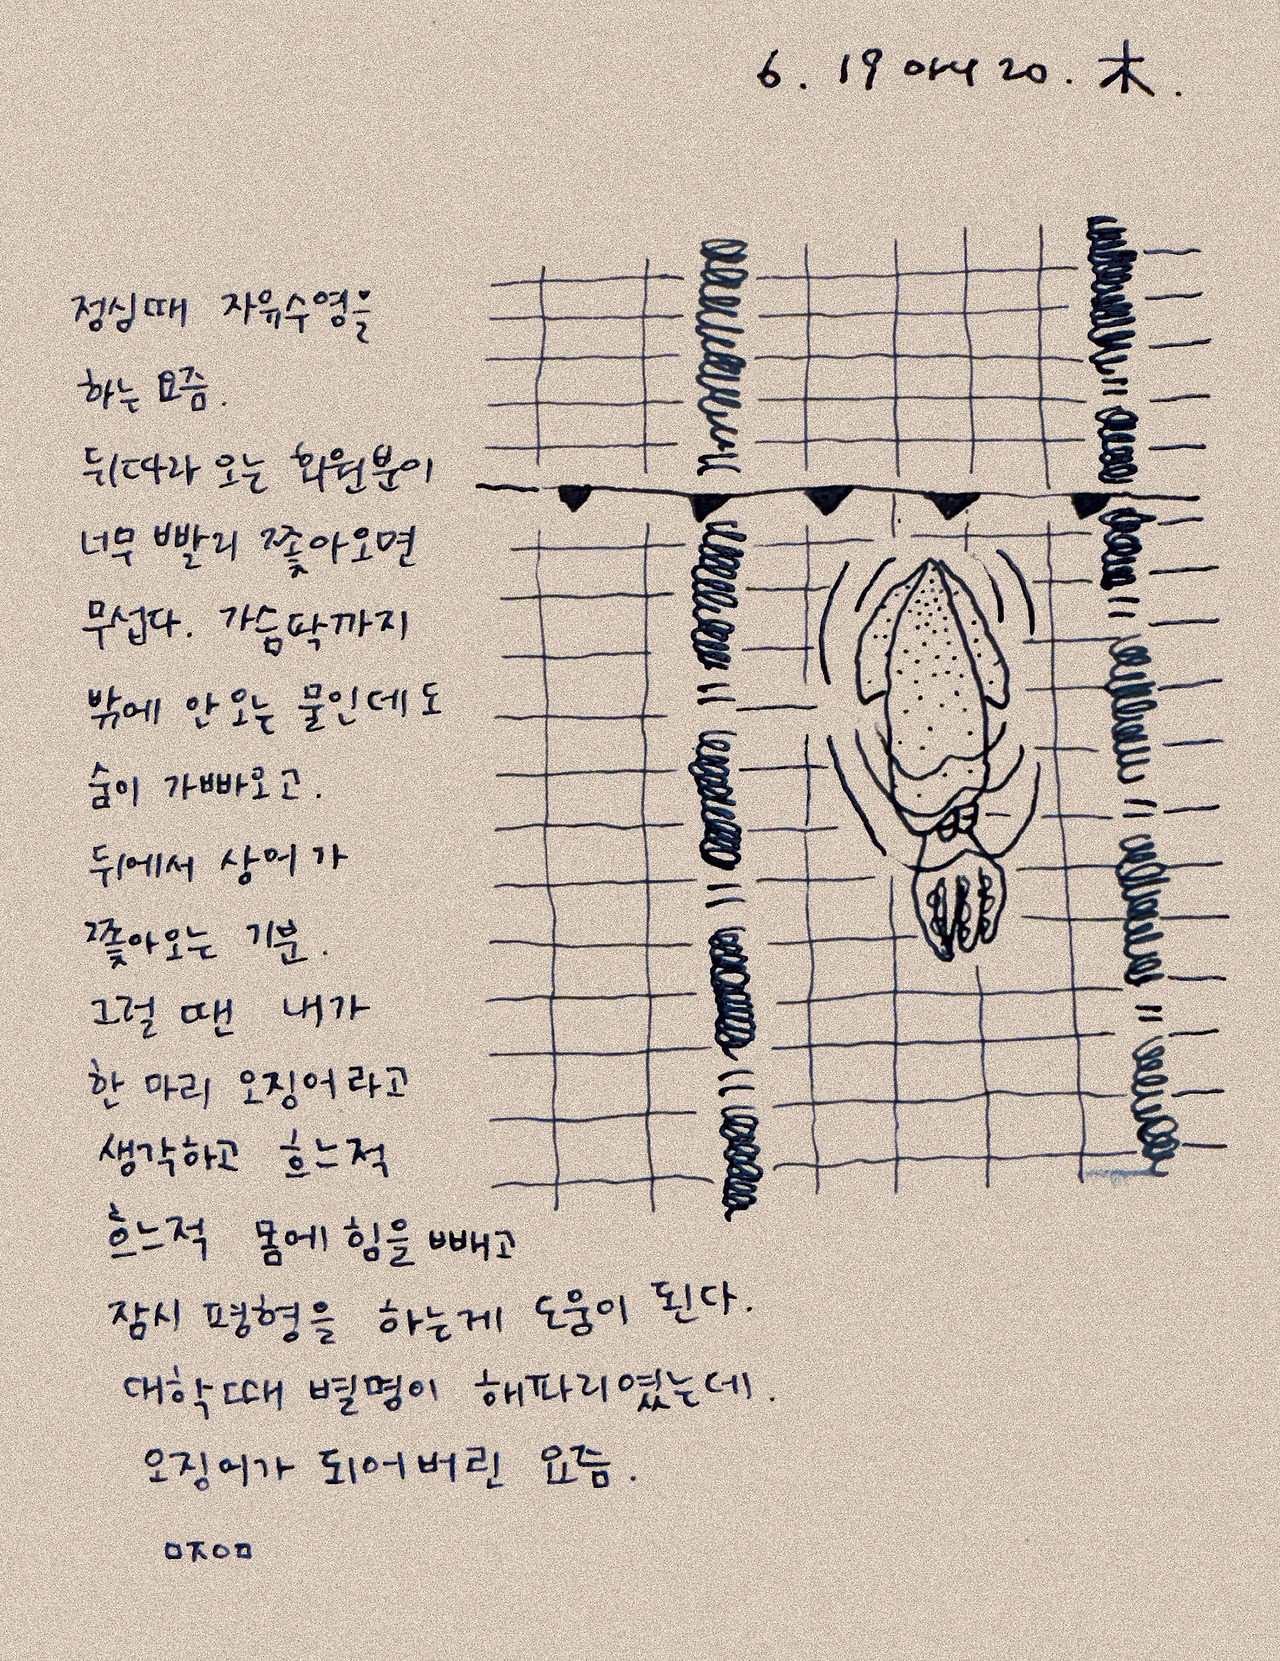 6. 19 아니 20. 木.
정심때 자유수영을
하는 요즘.
뒤따라 오는 회원분이
너무 빨리 쫓아오면
무섭다. 가슴팍까지
밖에 안오는 물인데도
숨이 가빠오고.
뒤에서 상어가
쫓아오는 기분.
그럴 땐 내가
한 마리 오징어라고
생각하고 흐느적
흐느적 몸에 힘을 빼고
잠시 평형을 하는게 도움이 된다.
대학때 별명이 해파리였는데.
오징어가 되어버린 요즘.
ㅁㅈㅇㅁ